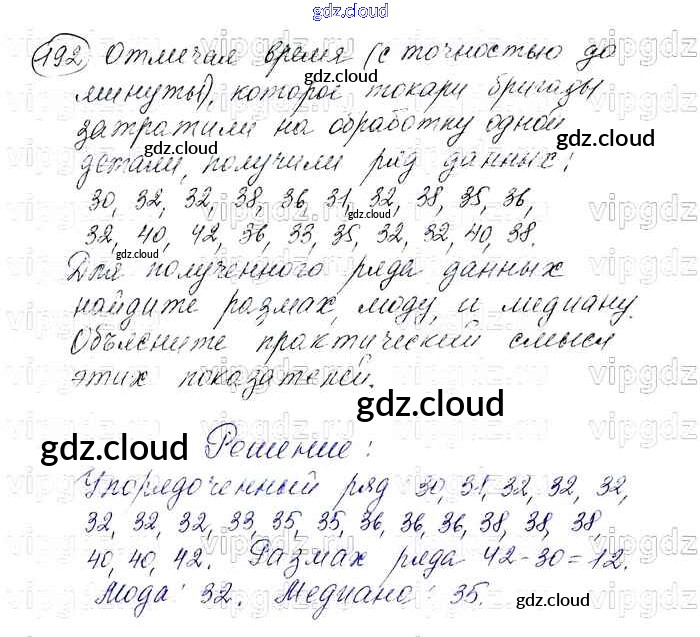 gdz.cloud
192 Отмечая время (с точностью до
gdz.cloud
минуты), которое токари бригады
затратили на обработку одной
gdz.cloud
gdz.cloud
детали, получили ряд данных:
30, 32, 32, 38, 36, 31, 32, 38, 35, 36,
gdz.cloud
32, 40, 42, 36, 33, 35, 32, 32, 40, 38.
gdz.cloud
Для полученного ряда данных
найдите размах, моду, и медиану.
Объясните практический смысл
этих показателей.
gdz.cloud
gdz.cloud Решение:
Упорядоченный ряд 30, 31, 32, 32, 32,
32, 32, 32, 33, 35, 35, 36, 36, 36, 38, 38, 38,
40, 40, 42. Размах ряда 42-30=12.
Мода: 32. Медиана: 35.
gdz.cloud
vipgdz.ru